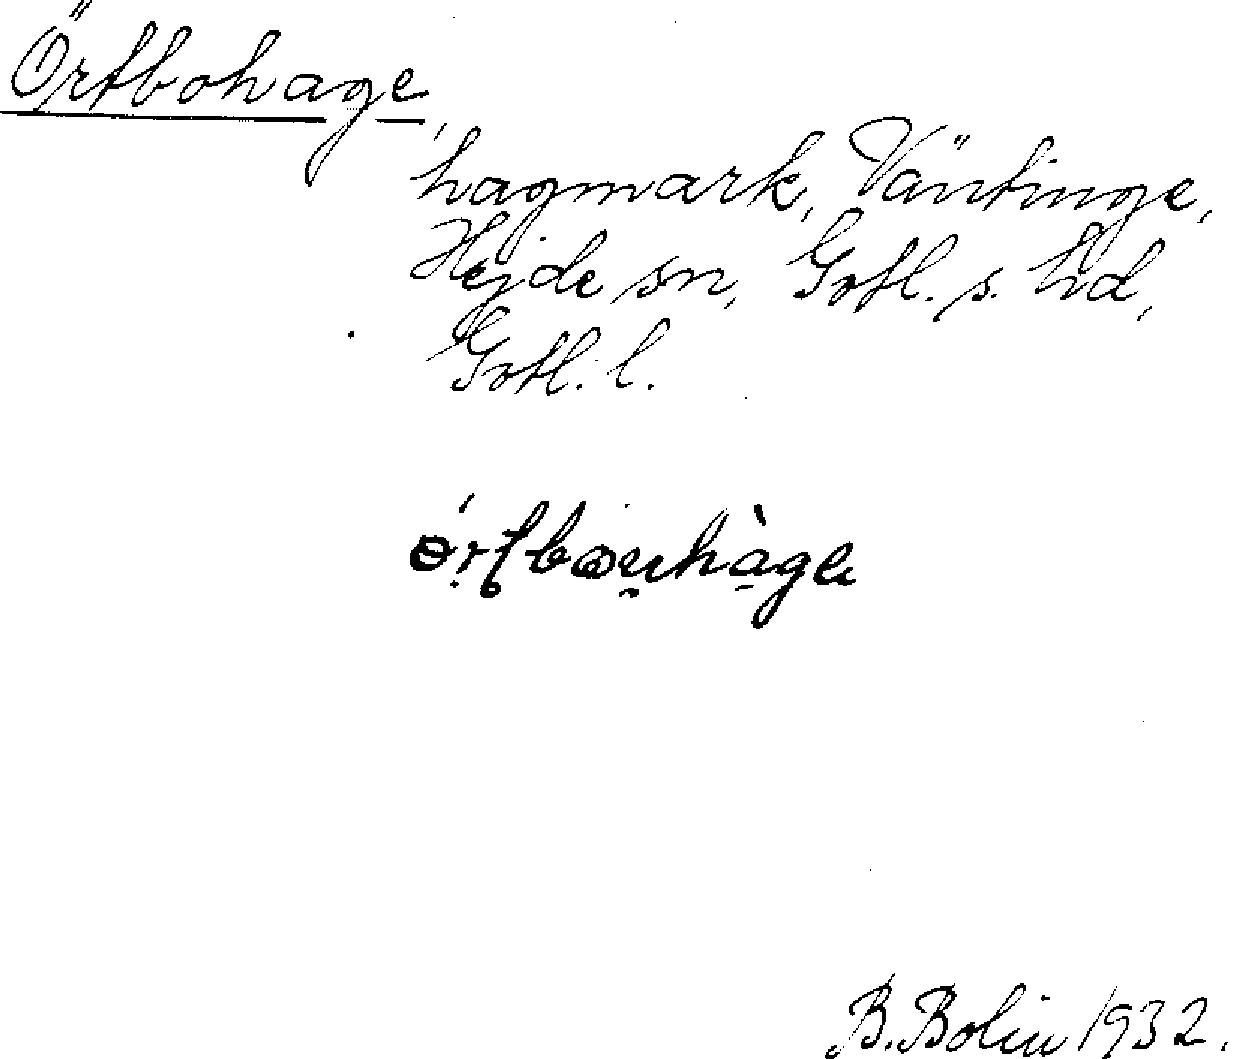 Örtbohage,
hagmark, Väntinge,
Hejde sn, Gotl. s. hd,
Gotl. l.
B. Bolin 1932.